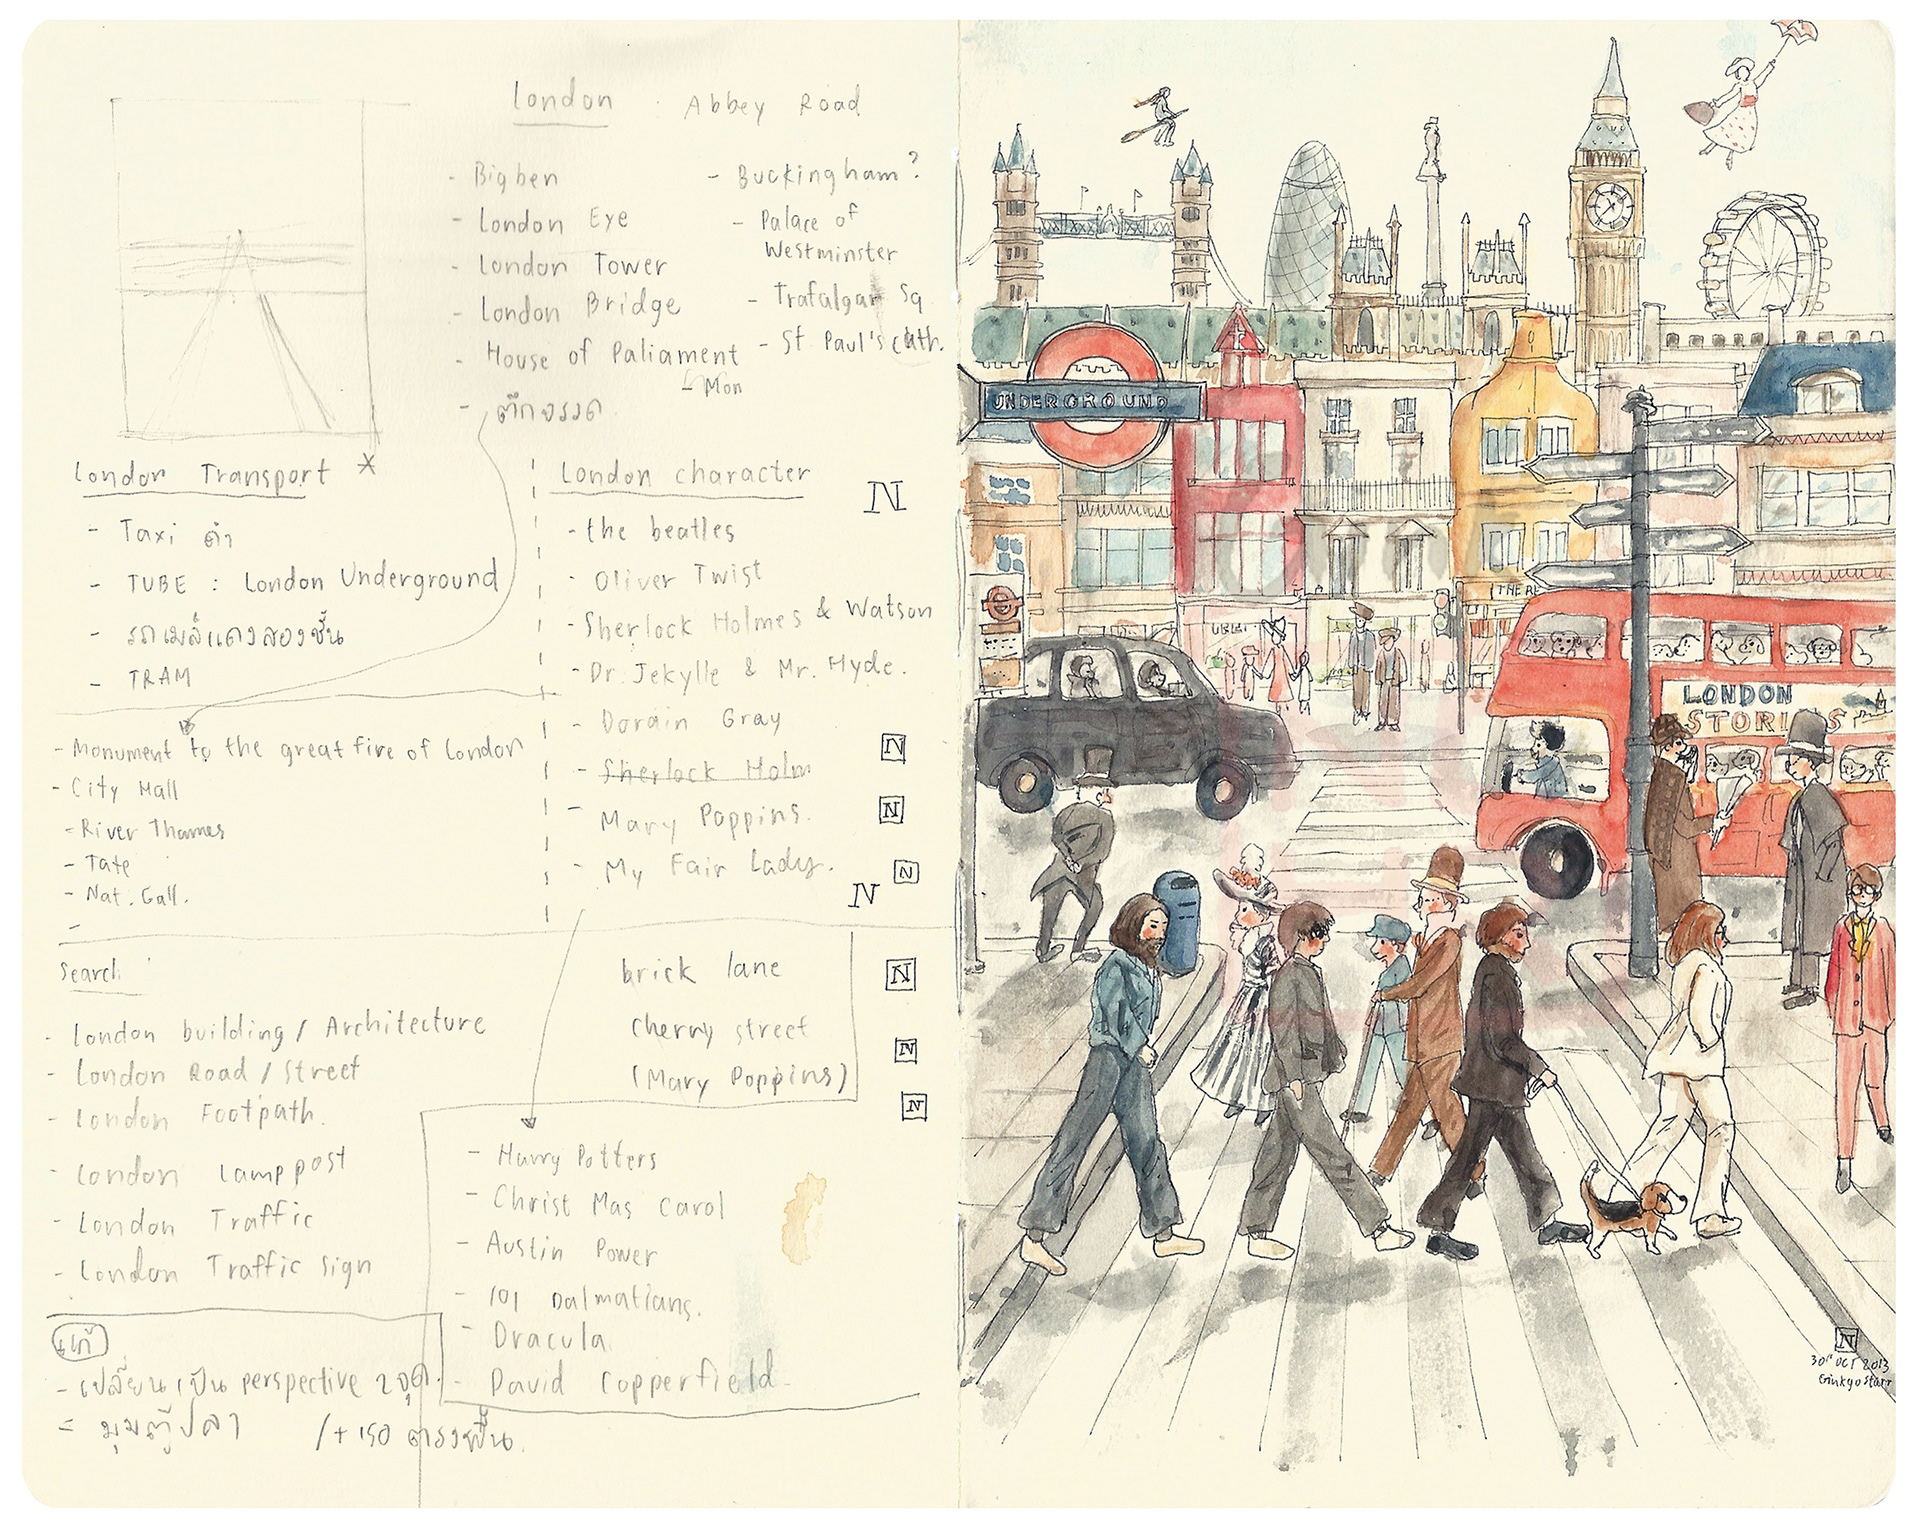 London
Abbey Road
- Big ben
- London Eye
- London Tower
- London Bridge
- House of Paliament
- Mon
- ตึกจรวด
- Buckingham?
- Palace of
Westminster
- Trafalgar Sq
- St Paul's Cath.
London Transport *
- Taxi ดำ
- TUBE : London Underground
- รถเมล์แดงสองชั้น
- TRAM
London character
- the beatles
- Oliver Twist
- Sherlock Holmes & Watson
- Dr. Jekylle & Mr. Hyde.
- Dorain Gray
- Sherlock Holm
- Mary Poppins.
- My Fair Lady.
N
N
N
N
N
N
N
N
- Monument to the great fire of London
- City Hall
- River Thames
- Tate
- Nat. Gall.
-
Search
- London building / Architecture
- London Road / Street
- London Footpath.
- London Lamp post
- London Traffic
- London Traffic Sign
brick lane
Cherry street
(Mary Poppins)
- Harry Potters
- Christ Mas Carol
- Austin Power
- 101 Dalmatians.
- Dracula
- David Copperfield
แก้
- เปลี่ยนเป็น perspective 2 จุด.
= มุมตู้ปลา
/+ เรียง ตรงพื้น.
UNDERGROUND
LONDON
STORIES
N
30th OCT 2013
Ginkgostarr